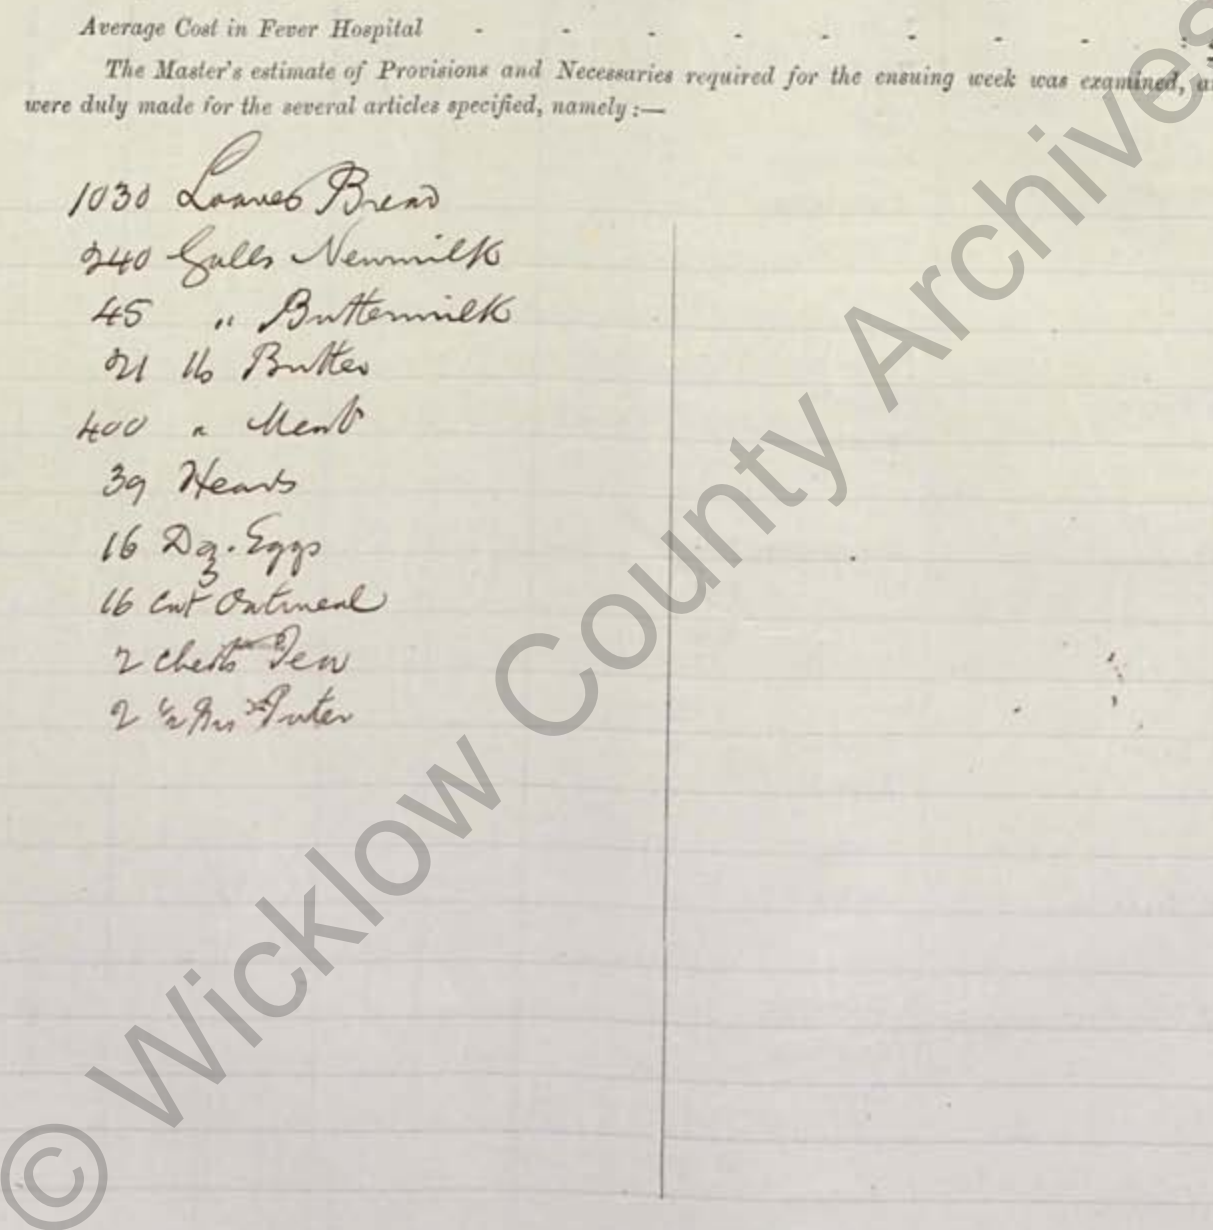 Average Cost in Fever Hospital - - - - - - - - :
The Master's estimate of Provisions and Necessaries required for the ensuing week was examined,
were duly made for the several articles specified, namely:—
1030 Loaves Bread
240 Galls Newmilk
45 " Buttermilk
21 lb Butter
400 " Meat
39 Heads
16 Dz. Eggs
16 Cwt Oatmeal
2 Chests Tea
2 1/2 Porter
© Wicklow County Archives